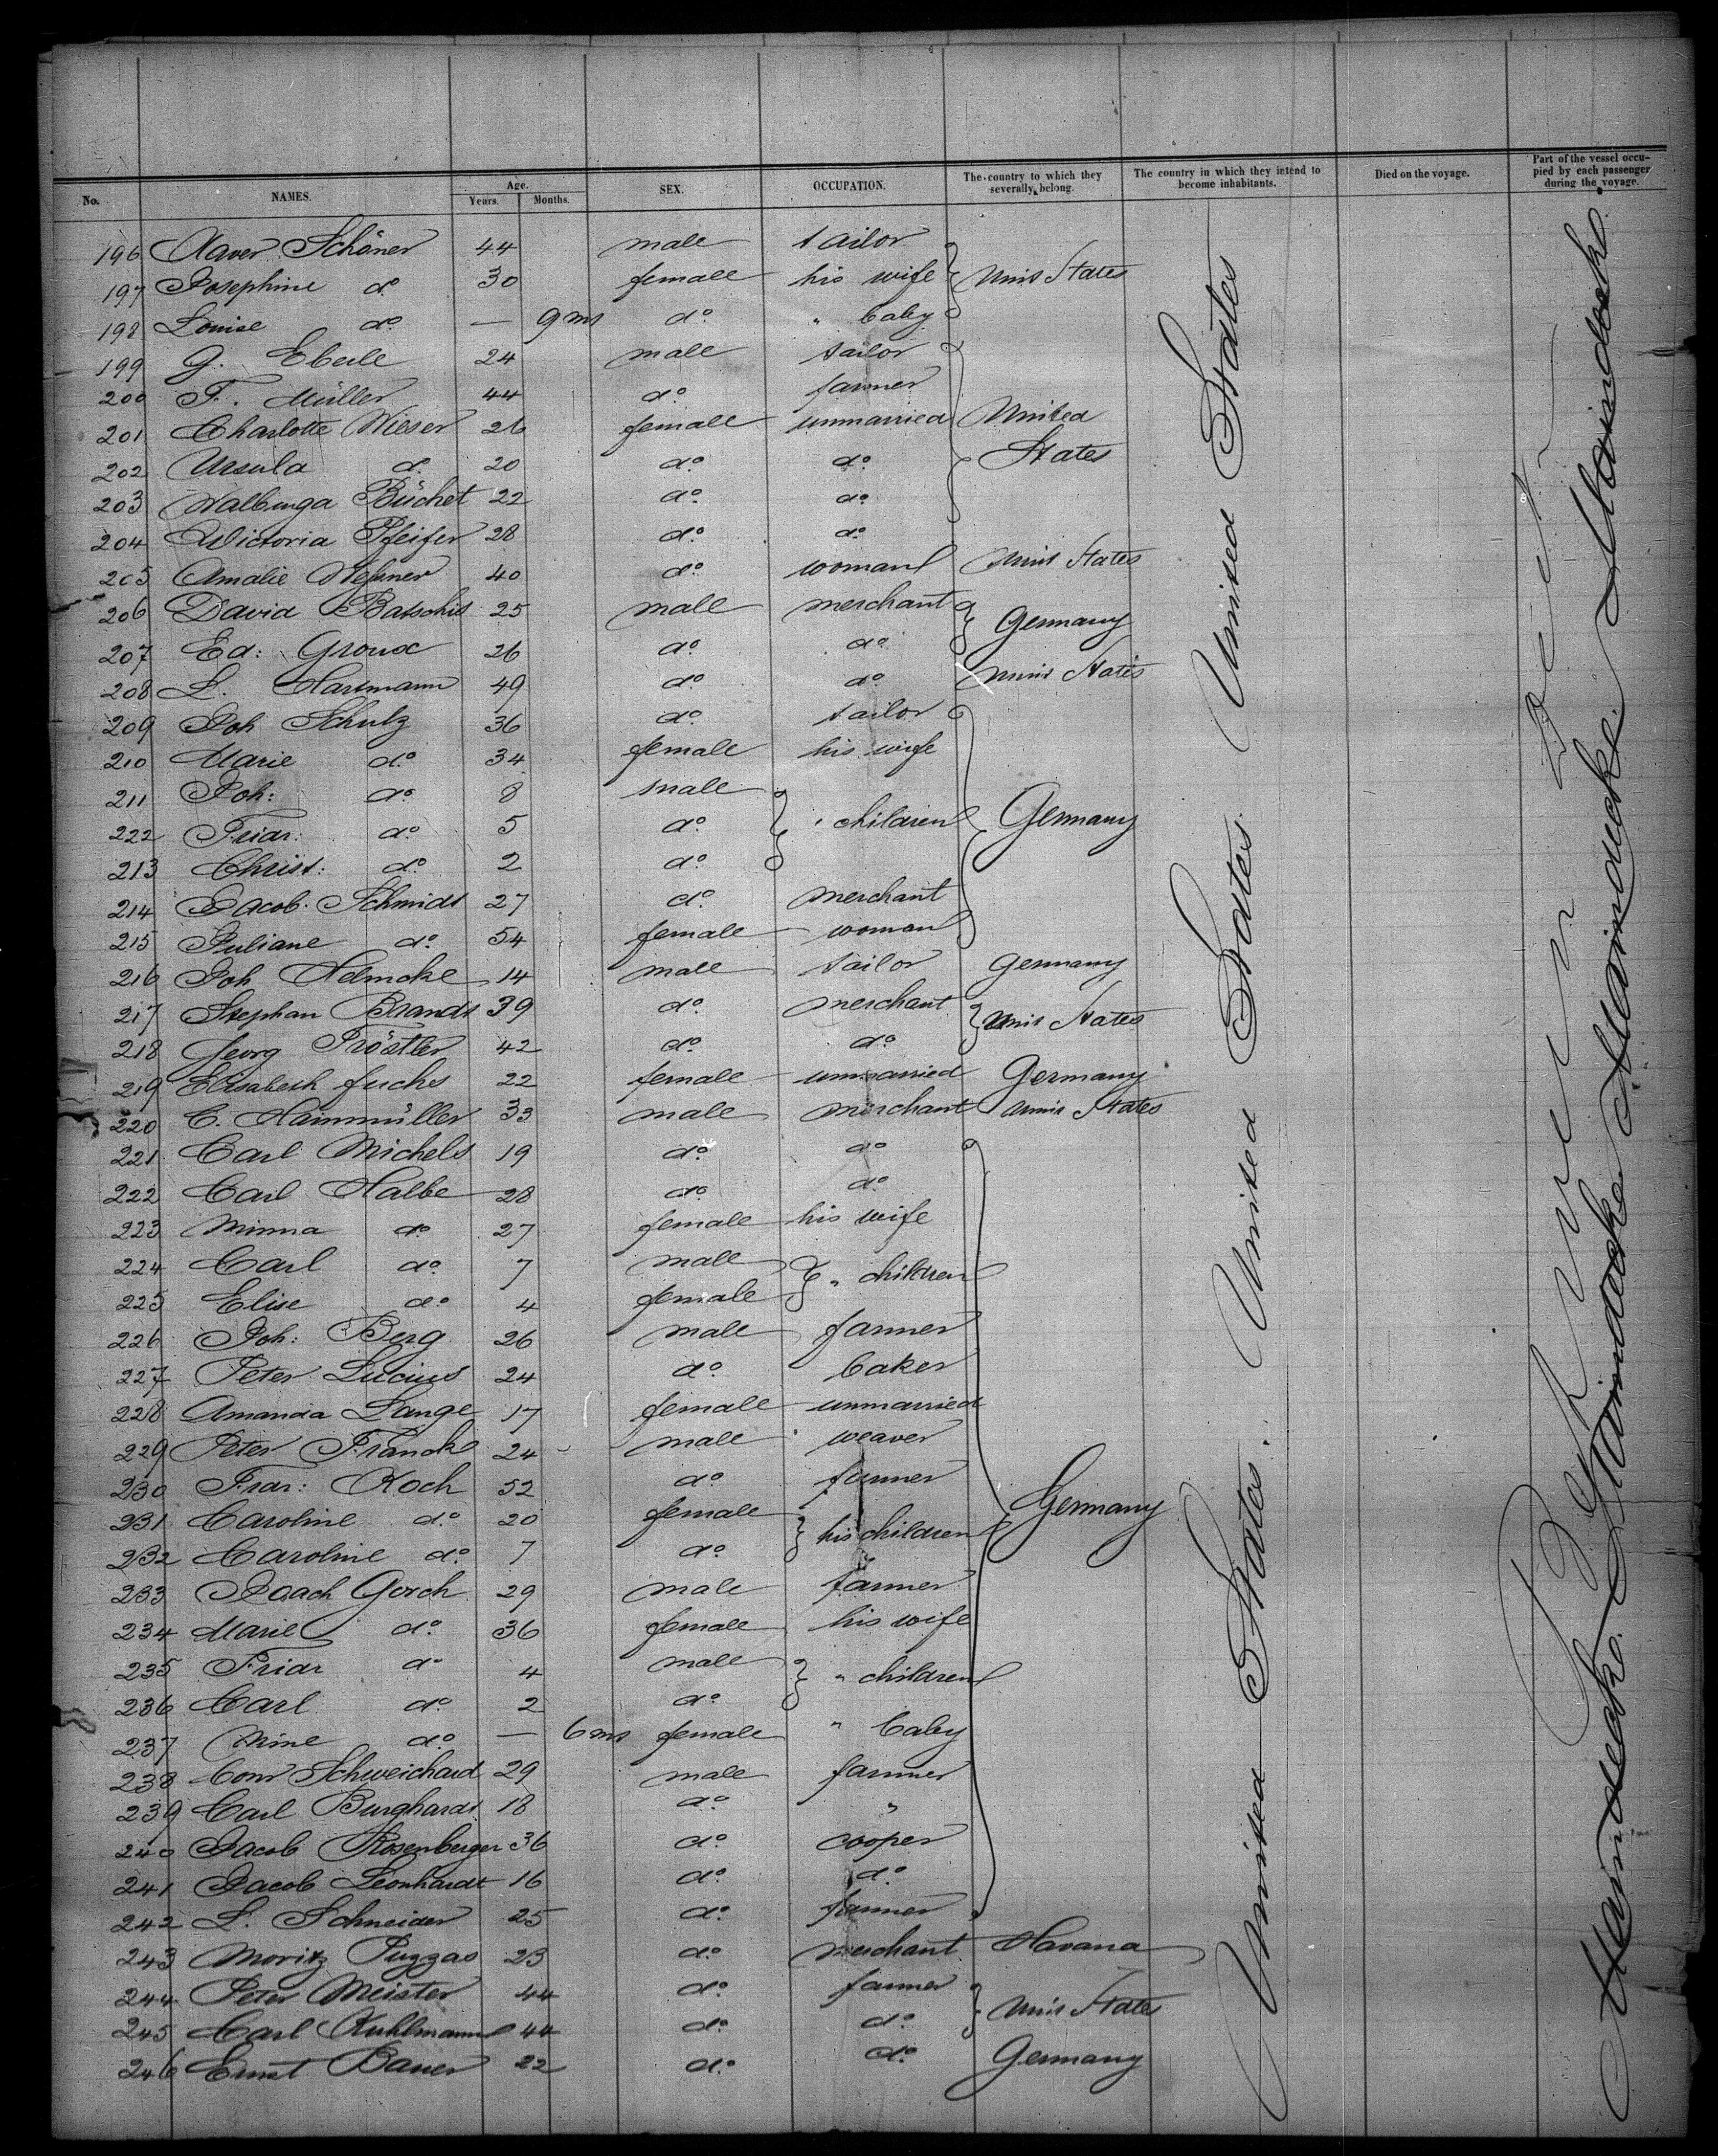 No. NAMES. Age. Years. Months. SEX. OCCUPATION. The country to which they severally belong. The country in which they intend to become inhabitants. Died on the voyage. Part of the vessel occupied by each passenger during the voyage.
196 Xaver Schöner 44 male tailor
197 Josephine do 30 female his wife Unit States
198 Louise do — 9 ms do " baby
199 G. Eberle 24 male tailor
200 F. Müller 44 do farmer
201 Charlotte Wieser 26 female unmarried United
202 Ursula do 20 do do States
203 Walbunga Büchet 22 do do
204 Victoria Pfeifer 28 do do
205 Amalie 40 do woman Unit States
206 David Batschis 25 male merchant Germany
207 Ed: Groux 26 do do
208 L. Hartmann 49 do do Unit States
209 Joh Schulz 36 do tailor
210 Marie do 34 female his wife
211 Joh: do 8 male
222 Fridr: do 5 do " children Germany
213 Christ: do 2 do
214 Jacob Schmidt 27 do merchant
215 Juliane do 54 female woman
216 Joh Helmcke 14 male tailor Germany
217 Stephan Brandt 39 do merchant Unit States
218 Georg Pröstler 42 do do
219 Elisabeth Fuchs 22 female unmarried Germany
220 C. Hainmüller 33 male merchant Unit States
221 Carl Michels 19 do do
222 Carl Halbe 28 do do
223 Minna do 27 female his wife
224 Carl do 7 male " children
225 Elise do 4 female
226 Joh: Berg 26 male farmer
227 Peter Lucius 24 do baker
228 Amanda Lange 17 female unmarried
229 Peter Franck 24 male weaver
230 Frdr: Koch 52 do farmer
231 Caroline do 20 female his children Germany
232 Caroline do 7 do "
233 Joach Gorch 29 male farmer
234 Marie do 36 female his wife
235 Fridr do 4 male " children
236 Carl do 2 do
237 Mine do — 6 ms female " baby
238 Conr Schweichard 29 male farmer
239 Carl Burghardt 18 do "
240 Jacob Rosenberger 36 do cooper
241 Jacob Leonhardt 16 do do
242 L. Schneider 25 do farmer
243 Moritz Puzzas 23 do merchant Havana
244 Peter Meister 44 do farmer Unit States
245 Carl Kuhlmann 44 do do
246 Ernst Bauer 22 do do Germany
United States. United States. United States